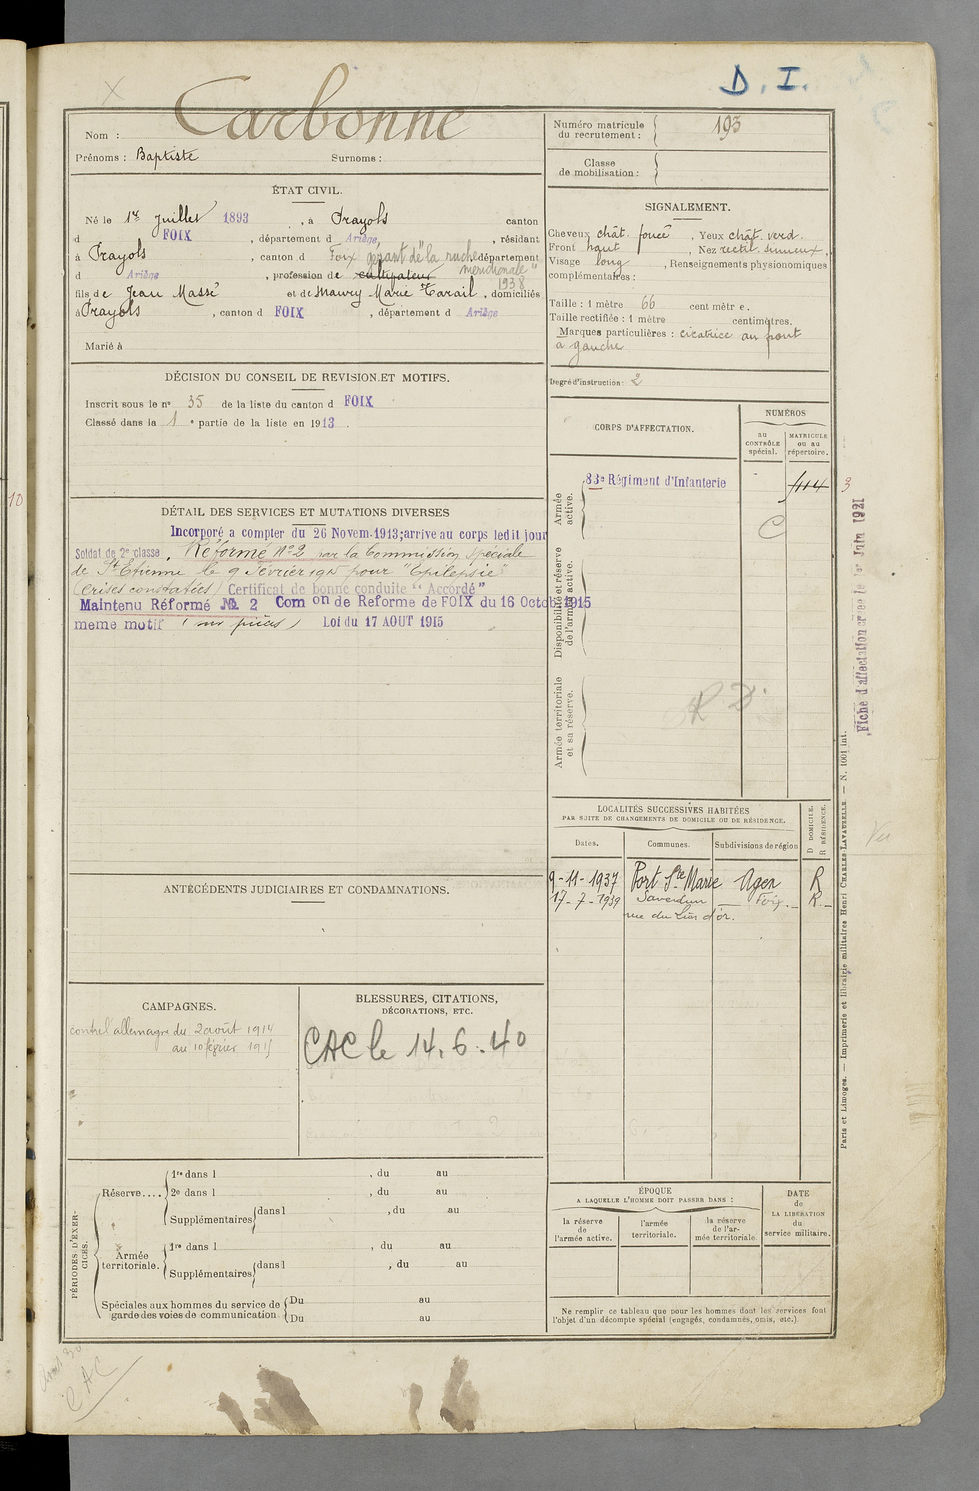 D. I.
Carbonne
Nom :
Prénoms : Baptiste Surnoms :
Numéro matricule du recrutement : 193
Classe de mobilisation :
ÉTAT CIVIL.
Né le 1er Juillet 1893, à Prayols canton
d FOIX, département d Ariège, résidant
à Prayols, canton d Foix gérant de "la ruche département
méridionale"
d Ariège, profession de cultivateur
1938
fils de Jean Massé et de Maury Marie Tarail, domiciliés
à Prayols, canton d FOIX, département d Ariège
Marié à
SIGNALEMENT.
Cheveux chât. foncé, Yeux chât. verd.
Front haut, Nez rectil. sinueux,
Visage long, Renseignements physionomiques
complémentaires :
Taille : 1 mètre 66 centimètre.
Taille rectifiée : 1 mètre centimètres.
Marques particulières : cicatrice au front
à gauche
Degré d'instruction : 2
DÉCISION DU CONSEIL DE REVISION ET MOTIFS.
Inscrit sous le no 35 de la liste du canton d FOIX
Classé dans la 1e partie de la liste en 1913.
DÉTAIL DES SERVICES ET MUTATIONS DIVERSES
Incorporé a compter du 26 Novem. 1913; arrive au corps ledit jour
Soldat de 2e classe. Réformé No 2 par la Commission spéciale
de St Etienne le 9 Février 1915 pour "Epilepsie"
(Crises constatées) Certificat de bonne conduite "Accordé"
Maintenu Réformé No 2 Com on de Reforme de FOIX du 16 Octob 1915
meme motif (sur pièces) Loi du 17 AOUT 1915
CORPS D'AFFECTATION.
NUMÉROS
au CONTRÔLE spécial.
MATRICULE ou au répertoire.
Armée active.
83e Régiment d'Infanterie
3
C
Disponibilité et réserve de l'armée active.
Armée territoriale et sa réserve.
R D.
Fiche d'affectation créée le 1er Juin 1921
LOCALITÉS SUCCESSIVES HABITÉES
PAR SUITE DE CHANGEMENTS DE DOMICILE OU DE RÉSIDENCE.
Dates. Communes. Subdivisions de région D DOMICILE. R RÉSIDENCE.
9-11-1937 Port Ste Marie Agen R
17-7-1939 Saverdun Foix R.
rue du Lion d'or.
ANTÉCÉDENTS JUDICIAIRES ET CONDAMNATIONS.
CAMPAGNES.
contre l'allemagne du 2 août 1914
au 10 février 1915
BLESSURES, CITATIONS,
DÉCORATIONS, ETC.
CAC le 14.6.40
PÉRIODES D'EXERCICES.
Réserve.... 1re dans l , du au
2e dans l , du au
Supplémentaires dans l , du au
Armée territoriale. 1re dans l , du au
Supplémentaires dans l , du au
Spéciales aux hommes du service de garde des voies de communication. Du au
Du au
ÉPOQUE
A LAQUELLE L'HOMME DOIT PASSER DANS :
la réserve de l'armée active.
l'armée territoriale.
la réserve de l'armée territoriale.
DATE de LA LIBÉRATION du service militaire.
Ne remplir ce tableau que pour les hommes dont les services font
l'objet d'un décompte spécial (engagés, condamnés, omis, etc.).
Paris et Limoges. — Imprimerie et librairie militaires Henri CHARLES-LAVAUZELLE. — N. 1001 int.
Vu
CAC
10